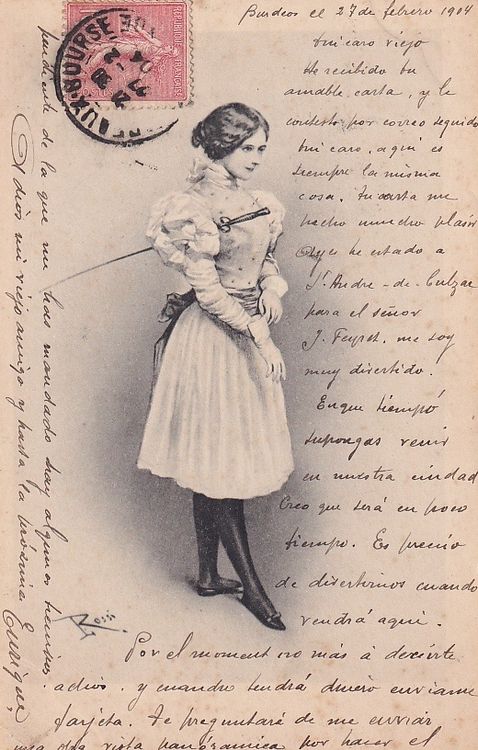 Burdeos el 27 de febrero 1904
Mi caro viejo
He recibido tu
amable carta, y le
contesto por correo seguido
Mi caro, aqui es
siempre la misma
cosa. Tu carta me
hacho mucho plaisir
Ayer he estado a
St Andre-de-Cubzac
para el señor
J. Feyret. me soy
muy divertido.
En que tiempó
supongas venir
en nuestra ciudad
Creo que será en poco
tiempo. Es precio
de divertirnos cuando
vendrá aqui.
Por el moment no más á decirte
adios, y cuando tendrá dinero enviame
tarjeta. Te preguntaré de me enviar
una otra vista panóramica por hacer el
pendiente de la que me has mandado hay algunos
Adios mi viejo amigo y hasta la próxima
Enrique
BORDEAUX BOURSE
27
2
04
REPUBLIQUE FRANÇAISE
POSTES